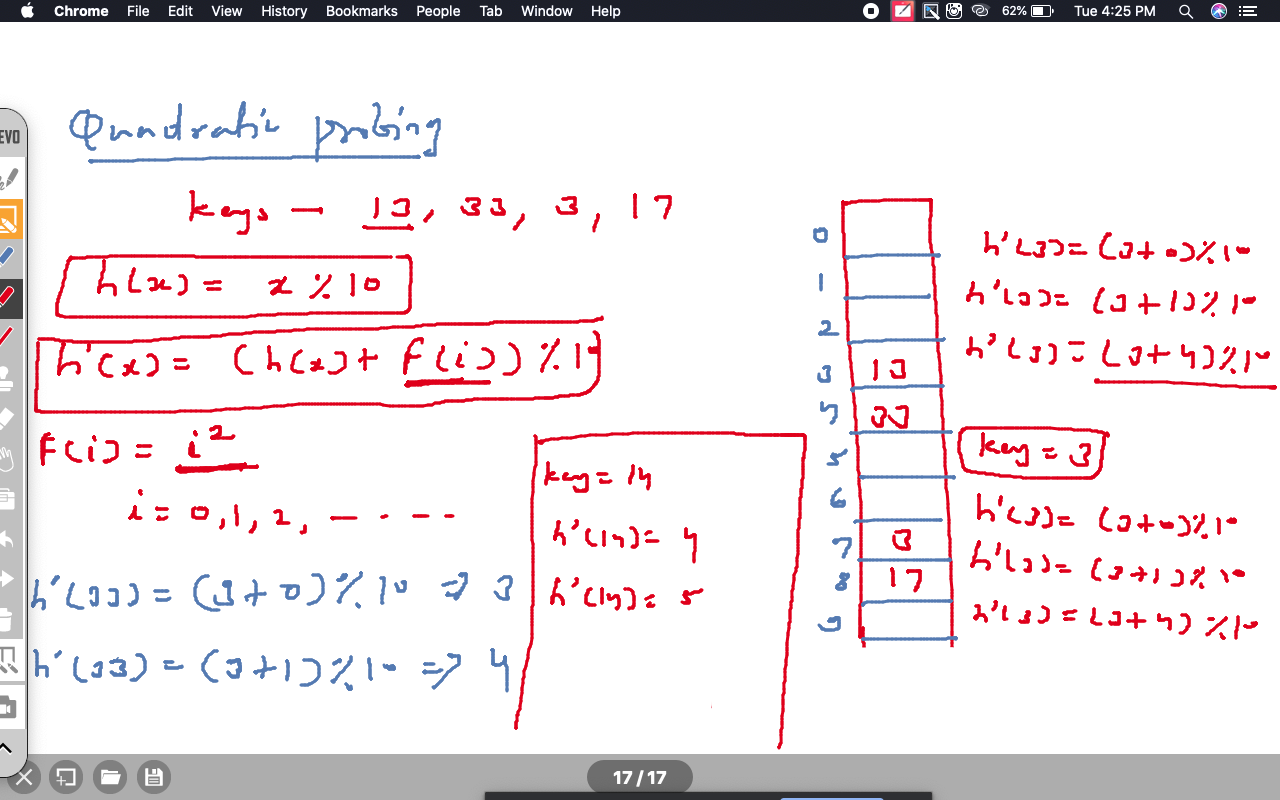 Chrome File Edit View History Bookmarks People Tab Window Help 62% Tue 4:25 PM
EVO
Quadratic probing
keys — 13, 33, 3, 17
h(x) = x % 10
h'(x) = (h(x) + f(i)) % 10
F(i) = i²
i = 0, 1, 2, — - - - -
h'(33) = (3+0) % 10 => 3
h'(33) = (3+1) % 10 => 4
key = 14
h'(14) = 4
h'(14) = 5
0
1
2
3 13
4 33
5
6
7 3
8 17
9
h'(3) = (3+0) % 10
h'(3) = (3+1) % 10
h'(3) = (3+4) % 10
key = 3
h'(3) = (3+0) % 10
h'(3) = (3+1) % 10
h'(3) = (3+4) % 10
17 / 17